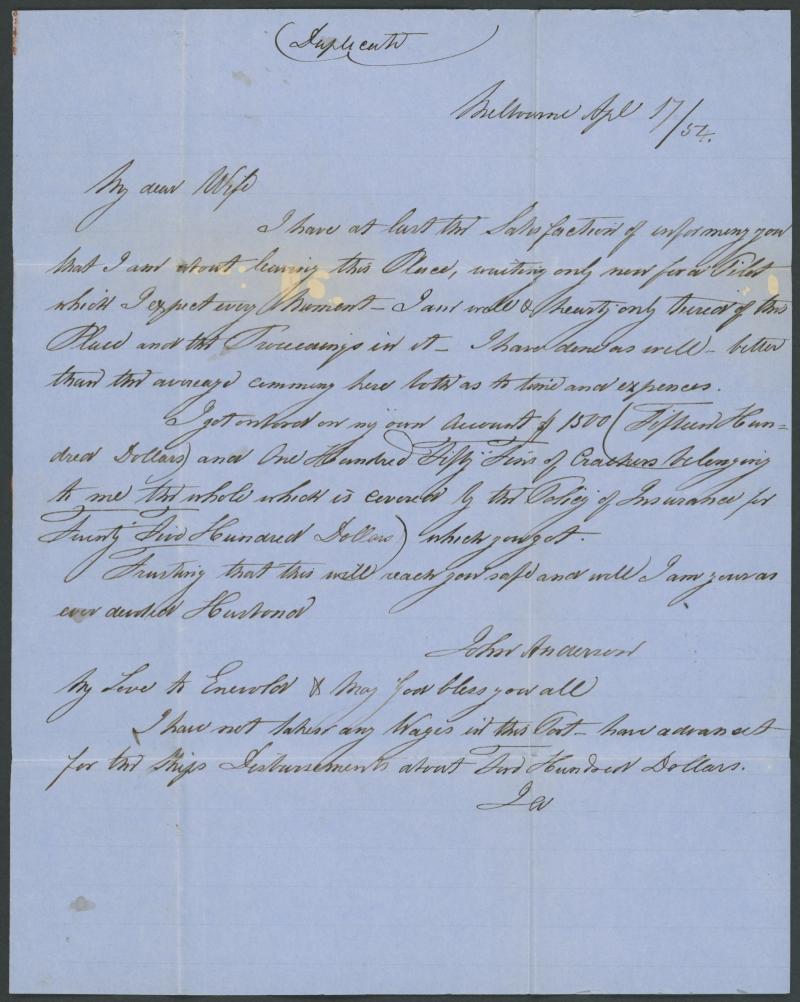 (Duplicate)
Melbourne Apl 17/54.
My dear Wife
I have at last the Satisfaction of informing you
that I am about leaving this Place, waiting only now for a Pilot
which I expect every Moment – I am well & hearty only tiered of this
Place and the Proceedings in it – I have done as well – better
than the avereage comming here both as to time and expences.
I got onbord on my own Account $ 1500 (Fifteen Hun=
dred Dollars) and One Hundred Fifty Tins of Crackers belonging
to me the whole which is covered by the Policy of Insurance for
Twenty Five Hundred Dollars) which you got.
Trusting that this will reach you safe and well I am your as
ever devoted Husbond
John Anderson
My Love to Enevold & May God bless you all
I have not taken any Wages in this Port – have advanced
for the Ships Disbursements about Five Hundred Dollars.
JA